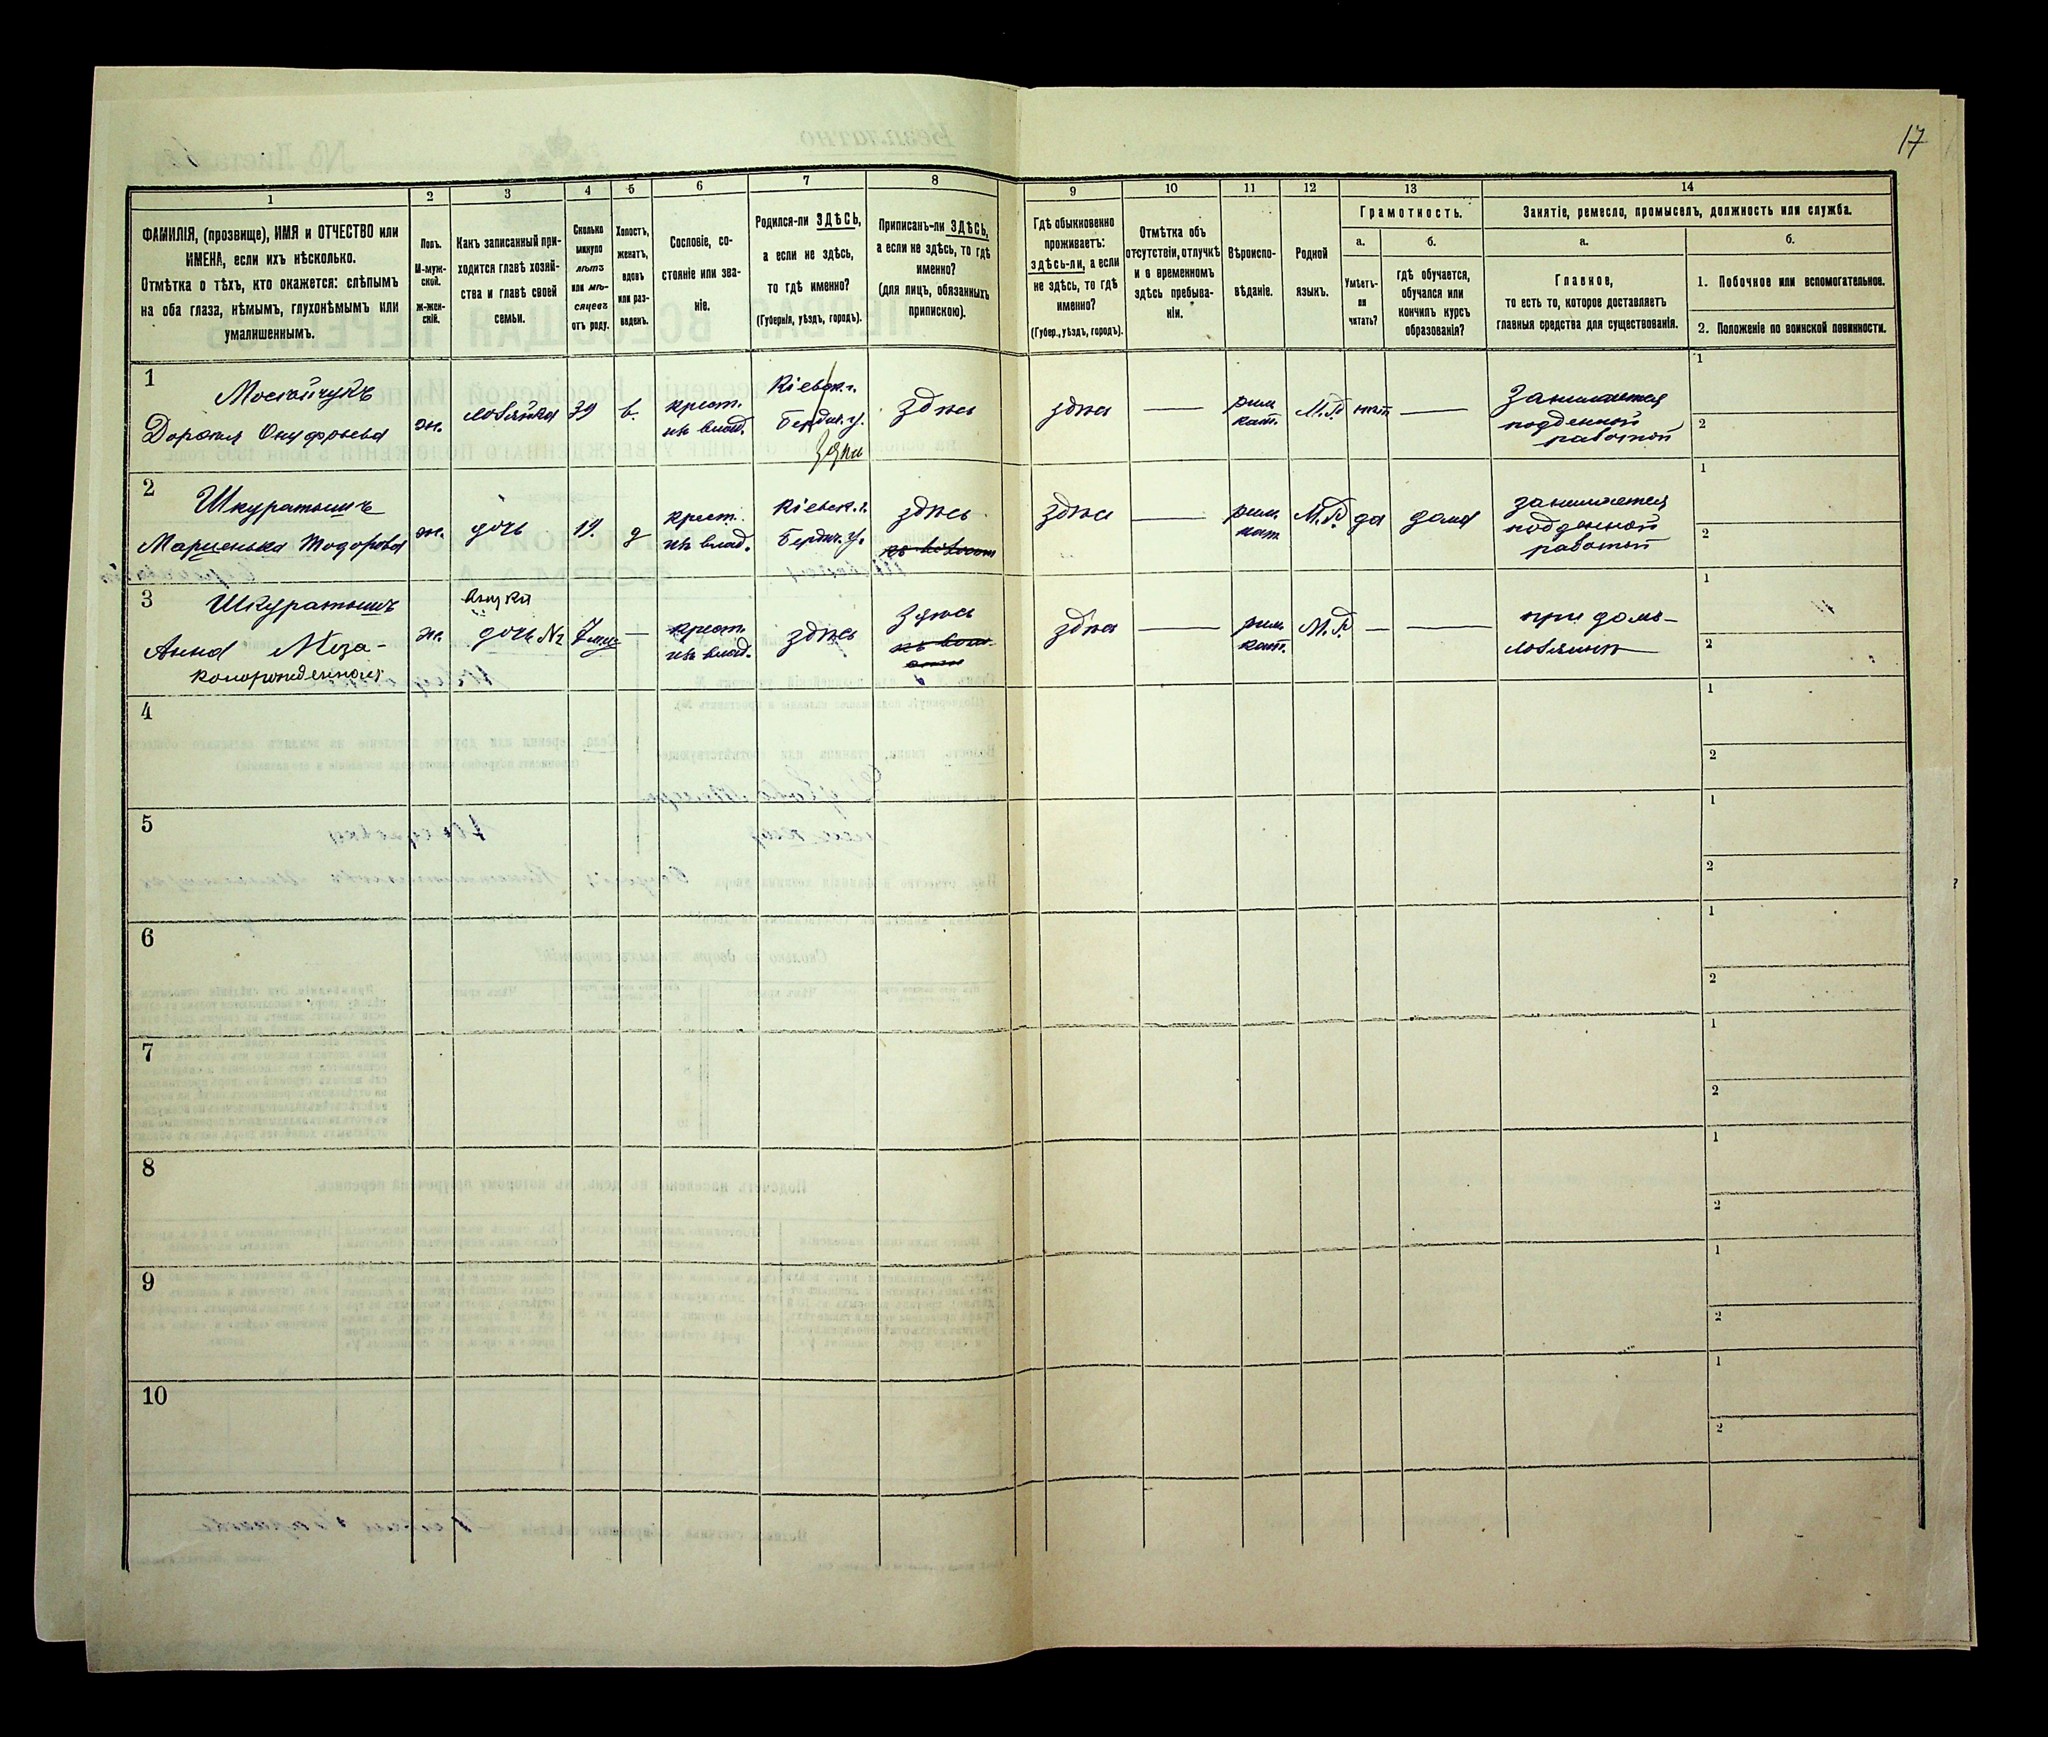 17
1
2
3
4
5
6
7
8
9
10
11
12
13
14
ФАМИЛІЯ, (прозвище), ИМЯ и ОТЧЕСТВО или
ИМЕНА, если ихъ нѣсколько.
Отмѣтка о тѣхъ, кто окажется: слѣпымъ
на оба глаза, нѣмымъ, глухонѣмымъ или
умалишеннымъ.
Полъ.
М-муж-
ской.
ж-жен-
скій.
Какъ записанный при-
ходится главѣ хозяй-
ства и главѣ своей
семьи.
Сколько
минуло
лѣтъ
или мѣ-
сяцевъ
отъ роду.
Холостъ,
женатъ,
вдовъ
или раз-
веденъ.
Сословіе, со-
стояніе или зва-
ніе.
Родился-ли ЗДѢСЬ,
а если не здѣсь,
то гдѣ именно?
(Губернія, уѣздъ, городъ).
Приписанъ-ли ЗДѢСЬ,
а если не здѣсь, то гдѣ
именно?
(для лицъ, обязанныхъ
припискою).
Гдѣ обыкновенно
проживаетъ:
здѣсь-ли, а если
не здѣсь, то гдѣ
именно?
(Губер., уѣздъ, городъ).
Отмѣтка объ
отсутствіи, отлучкѣ
и о временномъ
здѣсь пребыва-
ніи.
Вѣроиспо-
вѣданіе.
Родной
языкъ.
Грамотность.
а.
Умѣетъ-
ли
читать?
б.
гдѣ обучается,
обучался или
кончилъ курсъ
образованія?
Занятіе, ремесло, промыселъ, должность или служба.
а.
Главное,
то есть то, которое доставляетъ
главныя средства для существованія.
б.
1. Побочное или вспомогательное.
2. Положеніе по воинской повинности.
1
Мостойчукъ
ж.
39
в.
крест.
изъ влад.
Кіевск. г.
Бердич. у.
здѣсь
здѣсь
рим.
кат.
М.Р.
нѣтъ
занимается
поденной
работой
1
2
2
Шкуратышъ
Марценька Тодорова
ж.
дочь
19.
д
крест.
изъ влад.
Кіевск. г.
Бердич. у.
здѣсь
здѣсь
рим.
кат.
М.Р.
да
дома
занимается
поденной
работой
1
2
3
Шкуратышъ
Анна
ж.
внучка
дочь №2
7 мѣс
—
крест.
изъ влад.
здѣсь
здѣсь
здѣсь
рим.
кат.
М.Р.
—
при домѣ
1
2
4
1
2
5
1
2
6
1
2
7
1
2
8
1
2
9
1
2
10
1
2